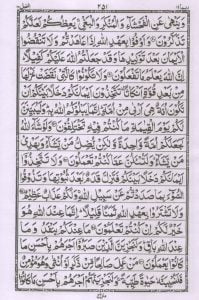 ٣٥١
وَيَنْهٰى عَنِ الْفَحْشَآءِ وَالْمُنْكَرِ وَالْبَغْيِ يَعِظُكُمْ لَعَلَّكُمْ
تَذَكَّرُوْنَ وَاَوْفُوْا بِعَهْدِ اللّٰهِ اِذَا عَاهَدْتُّمْ وَلَا تَنْقُضُوا
الْاَيْمَانَ بَعْدَ تَوْكِيْدِهَا وَقَدْ جَعَلْتُمُ اللّٰهَ عَلَيْكُمْ كَفِيْلًا اِنَّ
اللّٰهَ يَعْلَمُ مَا تَفْعَلُوْنَ وَلَا تَكُوْنُوْا كَالَّتِيْ نَقَضَتْ غَزْلَهَا
مِنْ بَعْدِ قُوَّةٍ اَنْكَاثًا تَتَّخِذُوْنَ اَيْمَانَكُمْ دَخَلًا بَيْنَكُمْ اَنْ
تَكُوْنَ اُمَّةٌ هِيَ اَرْبٰى مِنْ اُمَّةٍ اِنَّمَا يَبْلُوْكُمُ اللّٰهُ بِهٖ وَلَيُبَيِّنَنَّ
لَكُمْ يَوْمَ الْقِيٰمَةِ مَا كُنْتُمْ فِيْهِ تَخْتَلِفُوْنَ وَلَوْ شَآءَ اللّٰهُ
لَجَعَلَكُمْ اُمَّةً وَّاحِدَةً وَّلٰكِنْ يُّضِلُّ مَنْ يَّشَآءُ وَيَهْدِيْ
مَنْ يَّشَآءُ وَلَتُسْئَلُنَّ عَمَّا كُنْتُمْ تَعْمَلُوْنَ وَلَا تَتَّخِذُوْا
اَيْمَانَكُمْ دَخَلًا بَيْنَكُمْ فَتَزِلَّ قَدَمٌ بَعْدَ ثُبُوْتِهَا وَتَذُوْقُوا
السُّوْٓءَ بِمَا صَدَدْتُّمْ عَنْ سَبِيْلِ اللّٰهِ وَلَكُمْ عَذَابٌ عَظِيْمٌ
وَلَا تَشْتَرُوْا بِعَهْدِ اللّٰهِ ثَمَنًا قَلِيْلًا اِنَّمَا عِنْدَ اللّٰهِ هُوَ
خَيْرٌ لَّكُمْ اِنْ كُنْتُمْ تَعْلَمُوْنَ مَا عِنْدَكُمْ يَنْفَدُ وَمَا
عِنْدَ اللّٰهِ بَاقٍ وَلَنَجْزِيَنَّ الَّذِيْنَ صَبَرُوْٓا اَجْرَهُمْ بِاَحْسَنِ مَا
كَانُوْا يَعْمَلُوْنَ مَنْ عَمِلَ صَالِحًا مِّنْ ذَكَرٍ اَوْ اُنْثٰى وَهُوَ مُؤْمِنٌ
فَلَنُحْيِيَنَّهٗ حَيٰوةً طَيِّبَةً وَلَنَجْزِيَنَّهُمْ اَجْرَهُمْ بِاَحْسَنِ مَا كَانُوْا